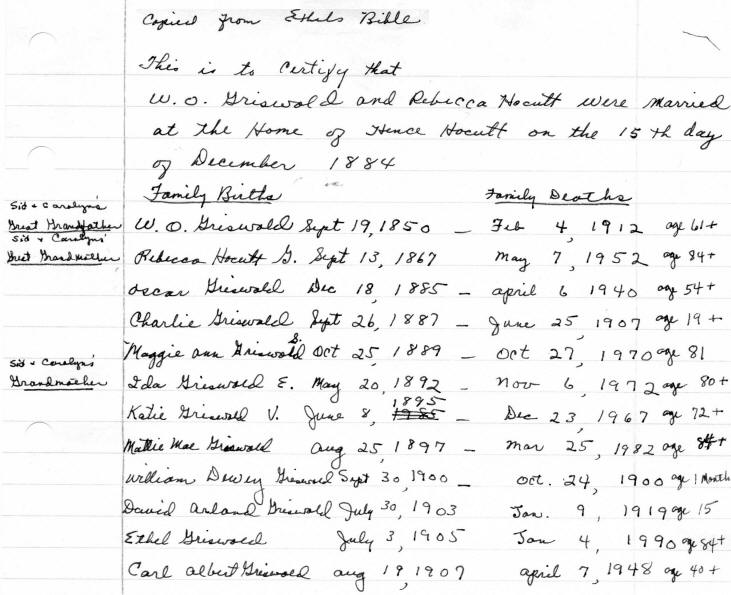 Copied from Ethels Bible
This is to Certify that
W.O. Griswold and Rebecca Hocutt were married
at the Home of Hence Hocutt on the 15th day
of December 1884
Family Births Family Deaths
Sid + Carolyn's
Great Grandfather W. O. Griswold Sept 19, 1850 – Feb 4, 1912 age 61+
Sid + Carolyn's
Great Grandmother Rebecca Hocutt G. Sept 13, 1867 May 7, 1952 age 84+
Oscar Griswold Dec 18, 1885 – April 6 1940 age 54+
Charlie Griswold Sept 26, 1887 – June 25, 1907 age 19+
Maggie Ann Griswold S. Oct 25, 1889 – Oct 27, 1970 age 81
Sid + Carolyn's
Grandmother Ida Griswold E. May 20, 1892 – Nov 6, 1972 age 80+
Katie Griswold V. June 8, 1895 – Dec 23, 1967 age 72+
Mattie Mae Griswold Aug 25, 1897 – Mar 25, 1982 age 84+
William Dewey Griswold Sept 30, 1900 – Oct. 24, 1900 age 1 Month
David Arland Griswold July 30, 1903 Jan. 9, 1919 age 15
Ethel Griswold July 3, 1905 Jan 4, 1990 age 84+
Carl Albert Griswold Aug 19, 1907 April 7, 1948 age 40+